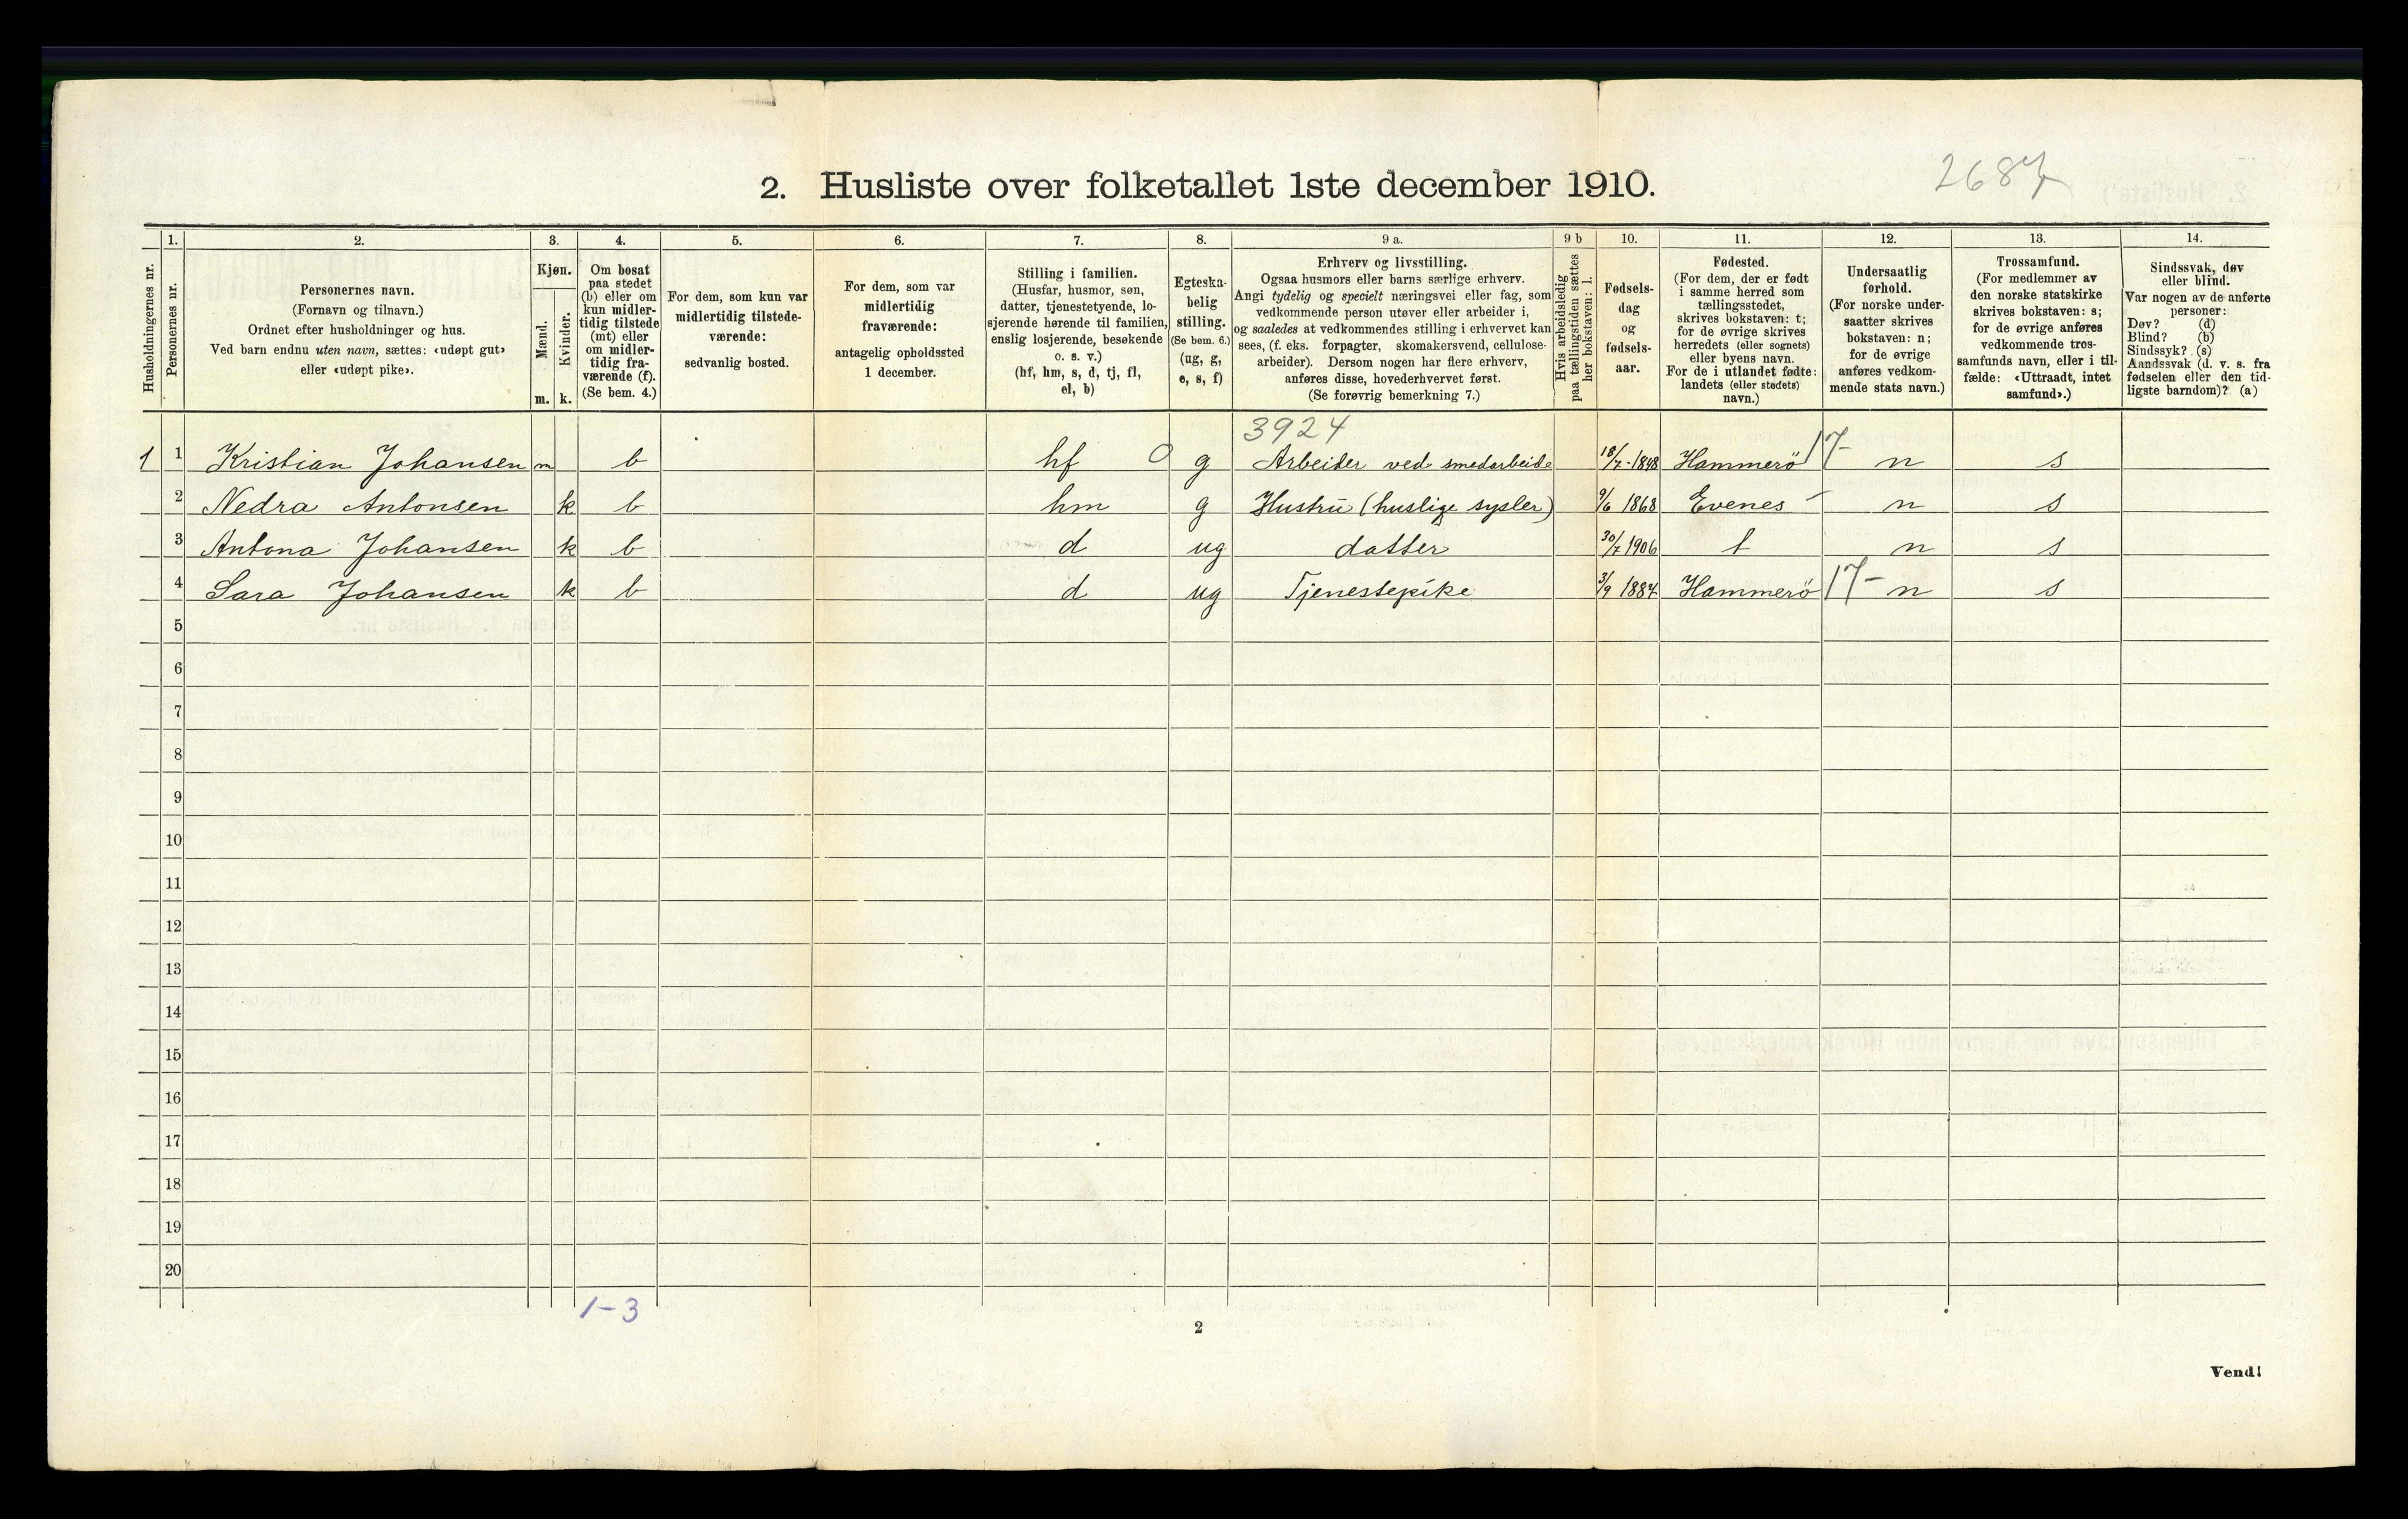 2. Husliste over folketallet 1ste december 1910.
1. 2. 3. 4. 5. 6. 7. 8. 9 a. 9 b 10. 11. 12. 13. 14.
Husholdningernes nr.
Personernes nr.
Personernes navn.
(Fornavn og tilnavn.)
Ordnet efter husholdninger og hus.
Ved barn endnu uten navn, sættes: «udøpt gut»
eller «udøpt pike».
Kjøn.
Mænd.
Kvinder.
m. k.
Om bosat
paa stedet
(b) eller om
kun midler-
tidig tilstede
(mt) eller
om midler-
tidig fra-
værende (f).
(Se bem. 4.)
For dem, som kun var
midlertidig tilstede-
værende:
sedvanlig bosted.
For dem, som var
midlertidig
fraværende:
antagelig opholdssted
1 december.
Stilling i familien.
(Husfar, husmor, søn,
datter, tjenestetyende, lo-
sjerende hørende til familien,
enslig losjerende, besøkende
o. s. v.)
(hf, hm, s, d, tj, fl,
el, b)
Egteska-
belig
stilling.
(Se bem. 6.)
(ug, g,
e, s, f)
Erhverv og livsstilling.
Ogsaa husmors eller barns særlige erhverv.
Angi tydelig og specielt næringsvei eller fag, som
vedkommende person utøver eller arbeider i,
og saaledes at vedkommendes stilling i erhvervet kan
sees, (f. eks. forpagter, skomakersvend, cellulose-
arbeider). Dersom nogen har flere erhverv,
anføres disse, hovederhvervet først.
(Se forøvrig bemerkning 7.)
Hvis arbeidsledig
paa tællingstiden sættes
her bokstaven: l.
Fødsels-
dag
og
fødsels-
aar.
Fødested.
(For dem, der er født
i samme herred som
tællingsstedet,
skrives bokstaven: t;
for de øvrige skrives
herredets (eller sognets)
eller byens navn.
For de i utlandet fødte:
landets (eller stedets)
navn.)
Undersaatlig
forhold.
(For norske under-
saatter skrives
bokstaven: n;
for de øvrige
anføres vedkom-
mende stats navn.)
Trossamfund.
(For medlemmer av
den norske statskirke
skrives bokstaven: s;
for de øvrige anføres
vedkommende tros-
samfunds navn, eller i til-
fælde: «Uttraadt, intet
samfund».)
Sindssvak, døv
eller blind.
Var nogen av de anførte
personer:
Døv? (d)
Blind? (b)
Sindssyk? (s)
Aandssvak (d. v. s. fra
fødselen eller den tid-
ligste barndom)? (a)
3924
1 1 Kristian Johansen m b hf 0 g Arbeider ved smedarbeide 18/7-1848 Hammerö 17- n s
2 Nedra Antonsen k b hm g Hustru (huslige sysler) 9/6 1868 Evenes - n s
3 Antona Johansen k b d ug datter 30/7 1906 t n s
4 Sara Johansen k b d ug Tjenestepike 3/9 1887 Hammerö 17- n s
5
6
7
8
9
10
11
12
13
14
15
16
17
18
19
20
1-3
2
Vend!